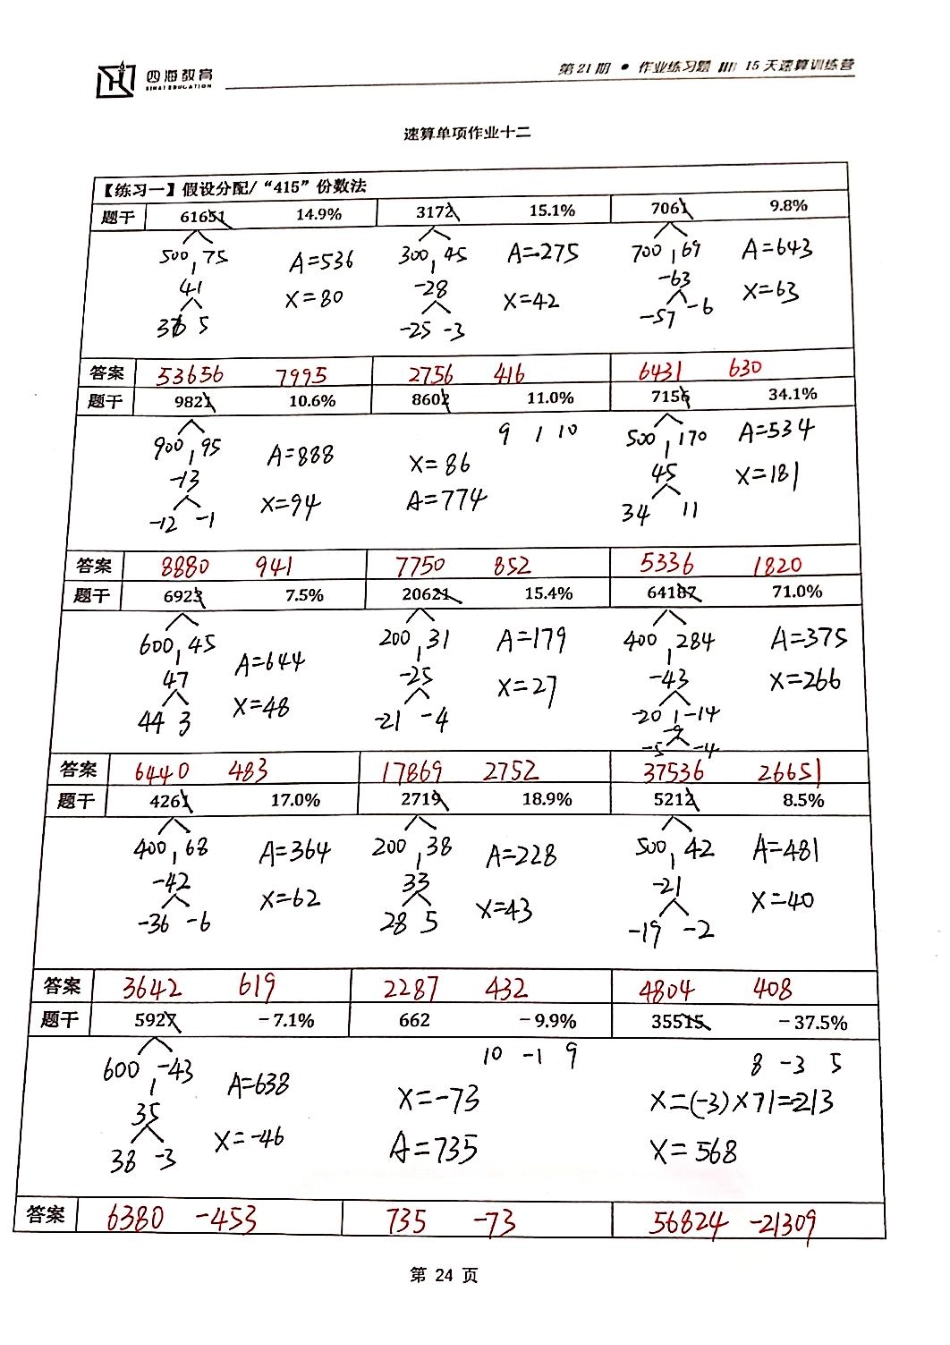 四海教育
SIHAI EDUCATION
第21期 • 作业练习题 III: 15天速算训练营
速算单项作业十二
【练习一】假设分配/“415”份数法
题干 61651 14.9% 3172 15.1% 7061 9.8%
500,75 A=536 300,45 A=275 700,69 A=643
41 -28 -63
X=80 X=42 X=63
36 5 -25 -3 -57 -6
答案 53656 7995 2756 416 6431 630
题干 9821 10.6% 8602 11.0% 7156 34.1%
9 1 10
900,95 A=888 X=86 500,170 A=534
-13 45
X=94 A=774 X=181
-12 -1 34 11
答案 8880 941 7750 852 5336 1820
题干 6923 7.5% 20621 15.4% 64187 71.0%
600,45 A=644 200,31 A=179 400,284 A=375
47 -25 -43
X=48 X=27 X=266
44 3 -21 -4 -20 -14
-5 -4
答案 6440 483 17869 2752 37536 26651
题干 4261 17.0% 2719 18.9% 5212 8.5%
400,68 A=364 200,38 A=228 500,42 A=481
-42 33 -21
X=62 X=43 X=40
-36 -6 28 5 -19 -2
答案 3642 619 2287 432 4804 408
题干 5927 -7.1% 662 -9.9% 35515 -37.5%
10 -1 9 8 -3 5
600,-43 A=638 X=-73 X=(-3)×71=-213
35
X=-46 A=735 X=568
38 -3
答案 6380 -453 735 -73 56824 -21309
第 24 页